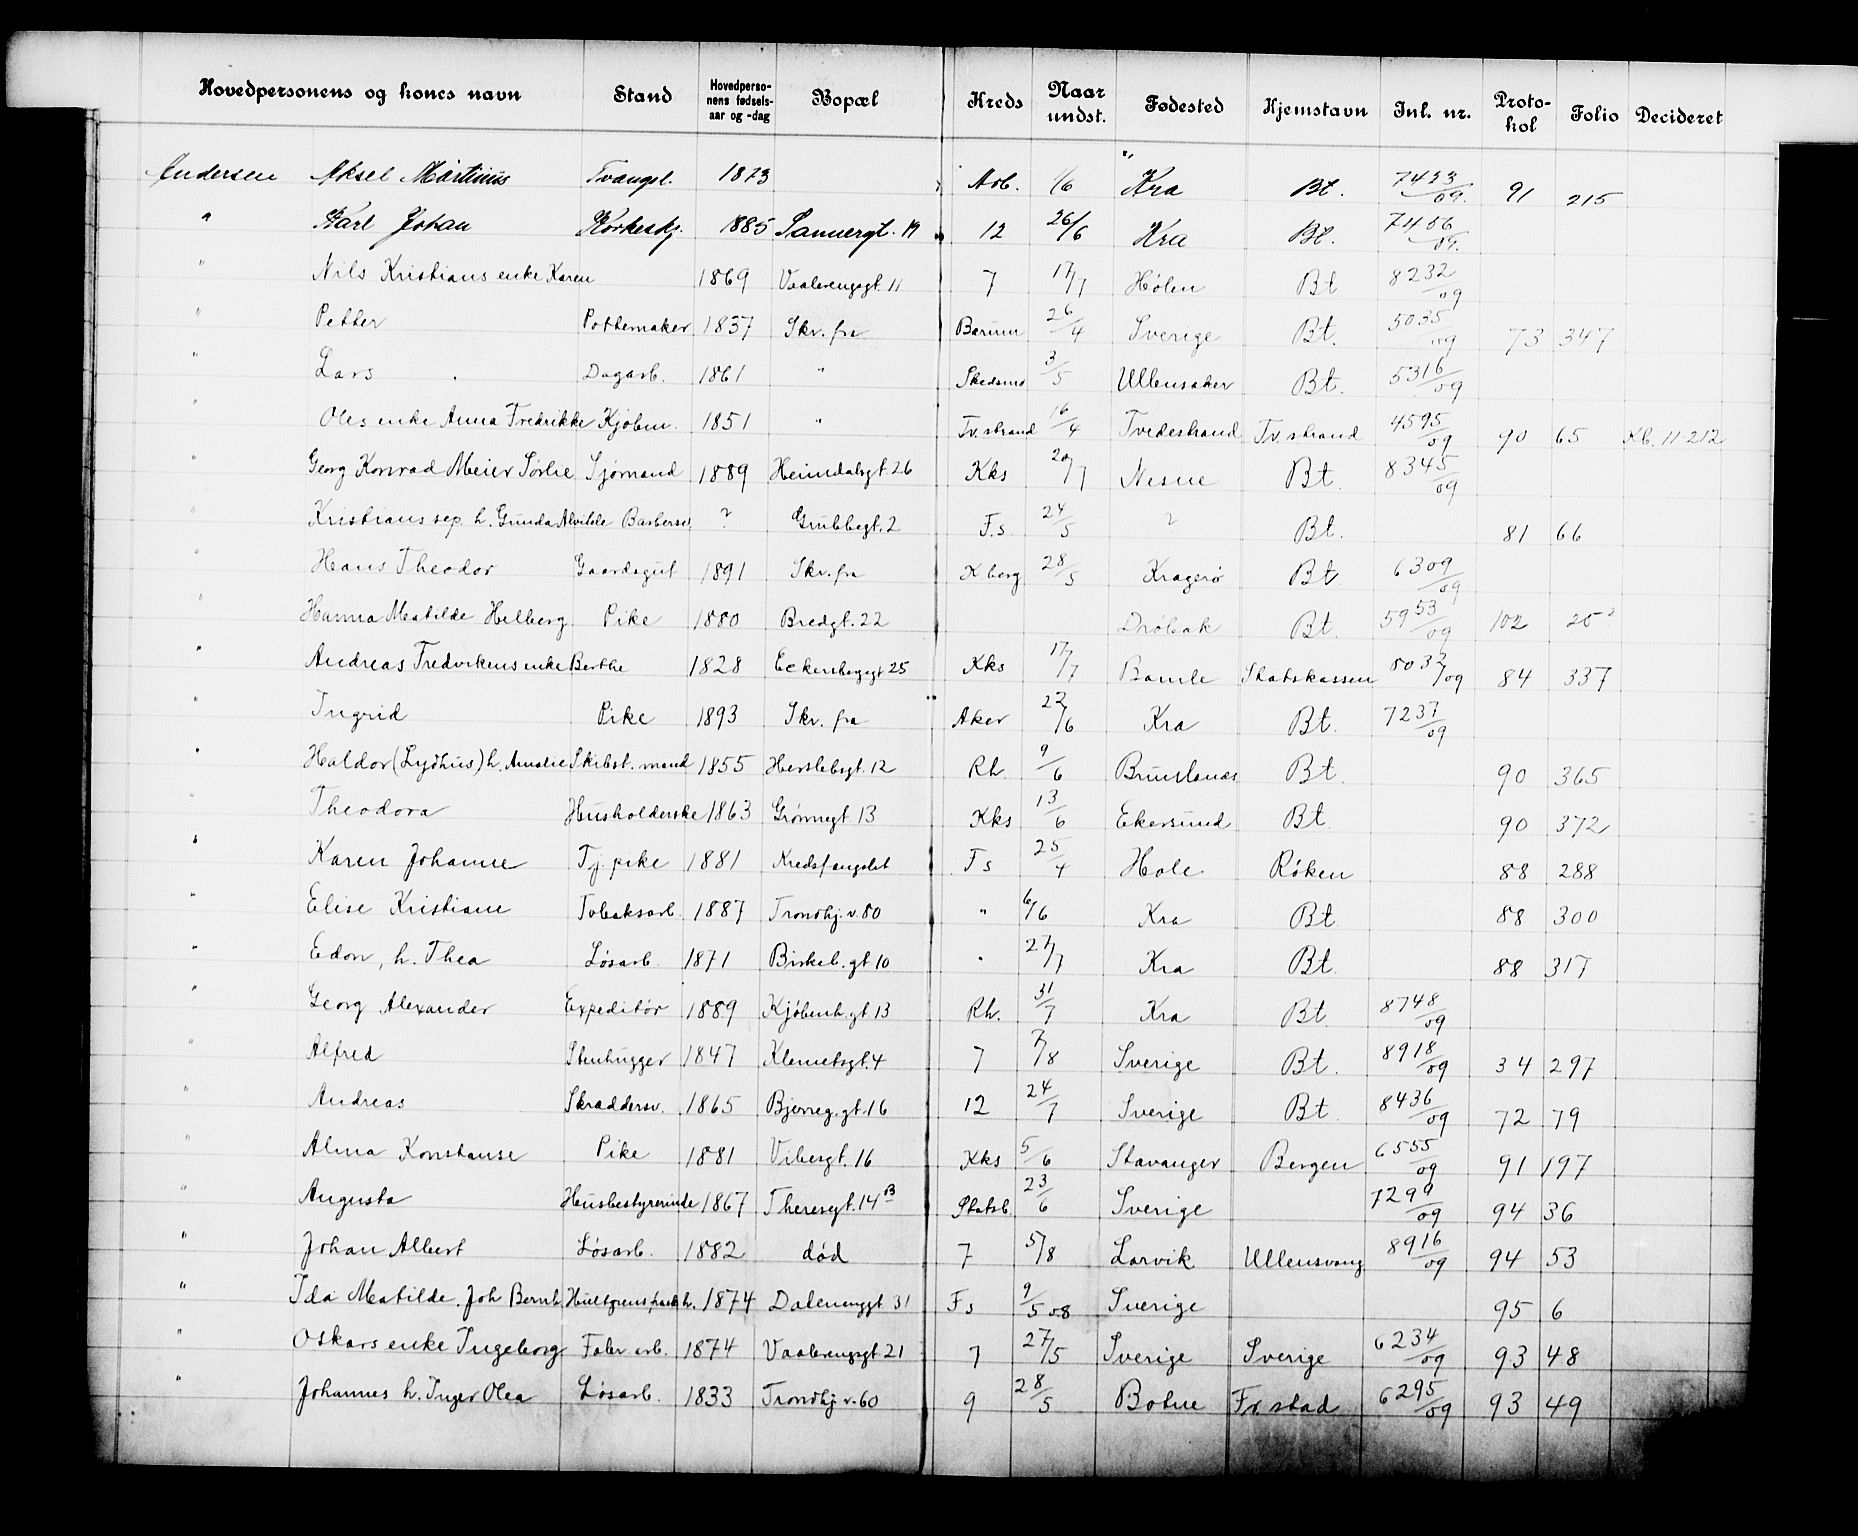 Hovedpersonens og kones navn Stand Hovedpersonens fødselsaar og -dag Bopæl Kreds Naar undst. Fødested Hjemstavn Inl. nr. Protokol Folio Decideret
Andersen Aksel Martinus Tvangsl. 1873 Arb. 1/6 Kra Bt. 7433/09. 91 215
" Karl Johan Korkeskj. 1885 Sannergt. 19 12 26/6 Kra Bt. 7456/09.
" Nils Kristians enke Karen 1869 Vaalerengsgt. 11 7 17/7 Hølen Bt 8232/09
" Petter Pottemaker 1837 Skr. fra Bærum 26/4 Sverige Bt. 5035/09 73 347
" Lars Dagarb. 1861 " Skedsmo 3/5 Ullensaker Bt. 5316/09
" Oles enke Anna Fredrikke Kjøbm. 1851 " Tv.strand 16/4 Tvedestrand Tv.strand 4595/09 90 65 Kb. 11-212
" Georg Konrad Meier Sørlie Sjømand 1889 Heimdalsgt. 26 Kks 20/7 Nesne Bt. 8345/09
" Kristians sep. h. Gunda Alvilde Barbersv. ? Grubbegt. 2 F.s. 24/5 ? Bt. 81 66
" Hans Theodor Gaardsgut 1891 Skr. fra K.borg 28/5 Kragerø Bt 6309/09
" Hanna Matilde Helberg Pike 1880 Bredgt. 22 Drøbak Bt. 5953/09 102 25?
" Andreas Fredriksens enke Berthe 1828 Eckersbergsgt 25 Kks 17/7 Bamle Statskassen 8032/09 84 337
" Ingrid Pike 1893 Skr. fra Aker 22/6 Kra Bt. 7237/09
" Haldor (Lydhus) h. Amalie Skibst. mand 1855 Herslebsgt. 12 Rh. 9/6 Brunlanes Bt. 90 365
" Theodora Husholderske 1863 Grønnegt 13 Kks 13/6 Ekersund Bt 90 372
" Karen Johanne Tj. pike 1881 Kredsfengslet Fs 25/4 Hole Røken 88 288
" Elise Kristiane Tobaksarb. 1887 Trondhj. v. 80 " 6/6 Kra Bt 88 300
" Edon, h. Thea Løsarb. 1871 Birkeb. gt 10 " 27/7 Kra Bt. 88 317
" Georg Alexander Expeditør 1889 Kjøbenh. gt. 13 Rh. 31/7 Kra Bt 8748/09
" Alfred Stenhugger 1847 Klemetsgt. 4 7 7/8 Sverige Bt. 8918/09 34 297
" Andreas Skraddersv. 1865 Bjerreg. gt. 16 12 24/7 Sverige Bt. 8436/09 72 79
" Alma Konstanse Pike 1881 Vibesgt. 16 Kks 5/6 Stavanger Bergen 6555/09 91 197
" Augusta Husbestyrerinde 1867 Theresgt. 14 B Statsb. 23/6 Sverige 7299/09 94 36
" Johan Albert Løsarb. 1882 død 7 5/8 Larvik Ullensvang 8916/09 94 53
" Ida Matilde. Joh Bernh. Hultgrens h. 1874 Dalenenggt 31 Fs 9/5 08 Sverige 95 6
" Oskars enke Ingeborg Fabr arb. 1874 Vaalerengsgt 21 7 27/5 Sverige Sverige 6234/09 93 48
" Johannes h. Inger Olea Løsarb. 1833 Trondhj. v. 60 9 28/5 Botne Fr.stad 6295/09 93 49